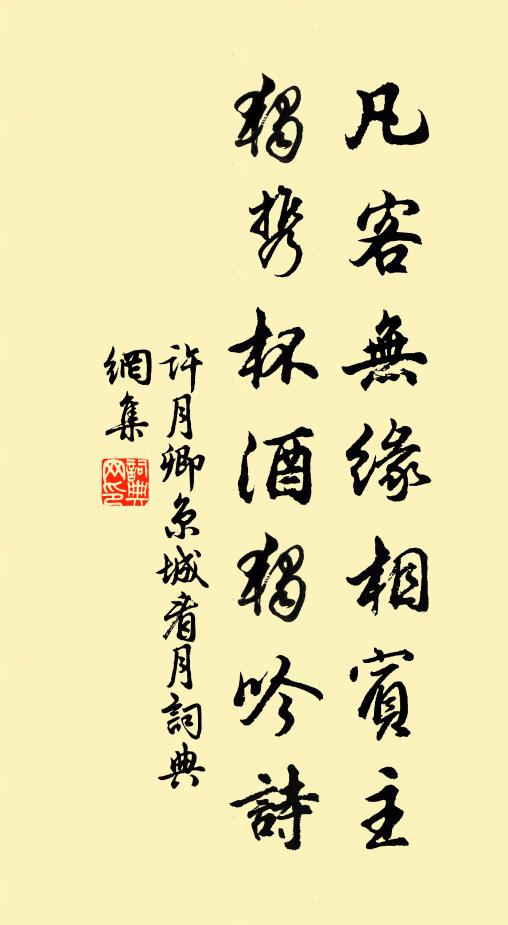 凡客無緣相賓主
獨攜杯酒獨吟詩
許月卿京城看月詞典
網集
詞典網印